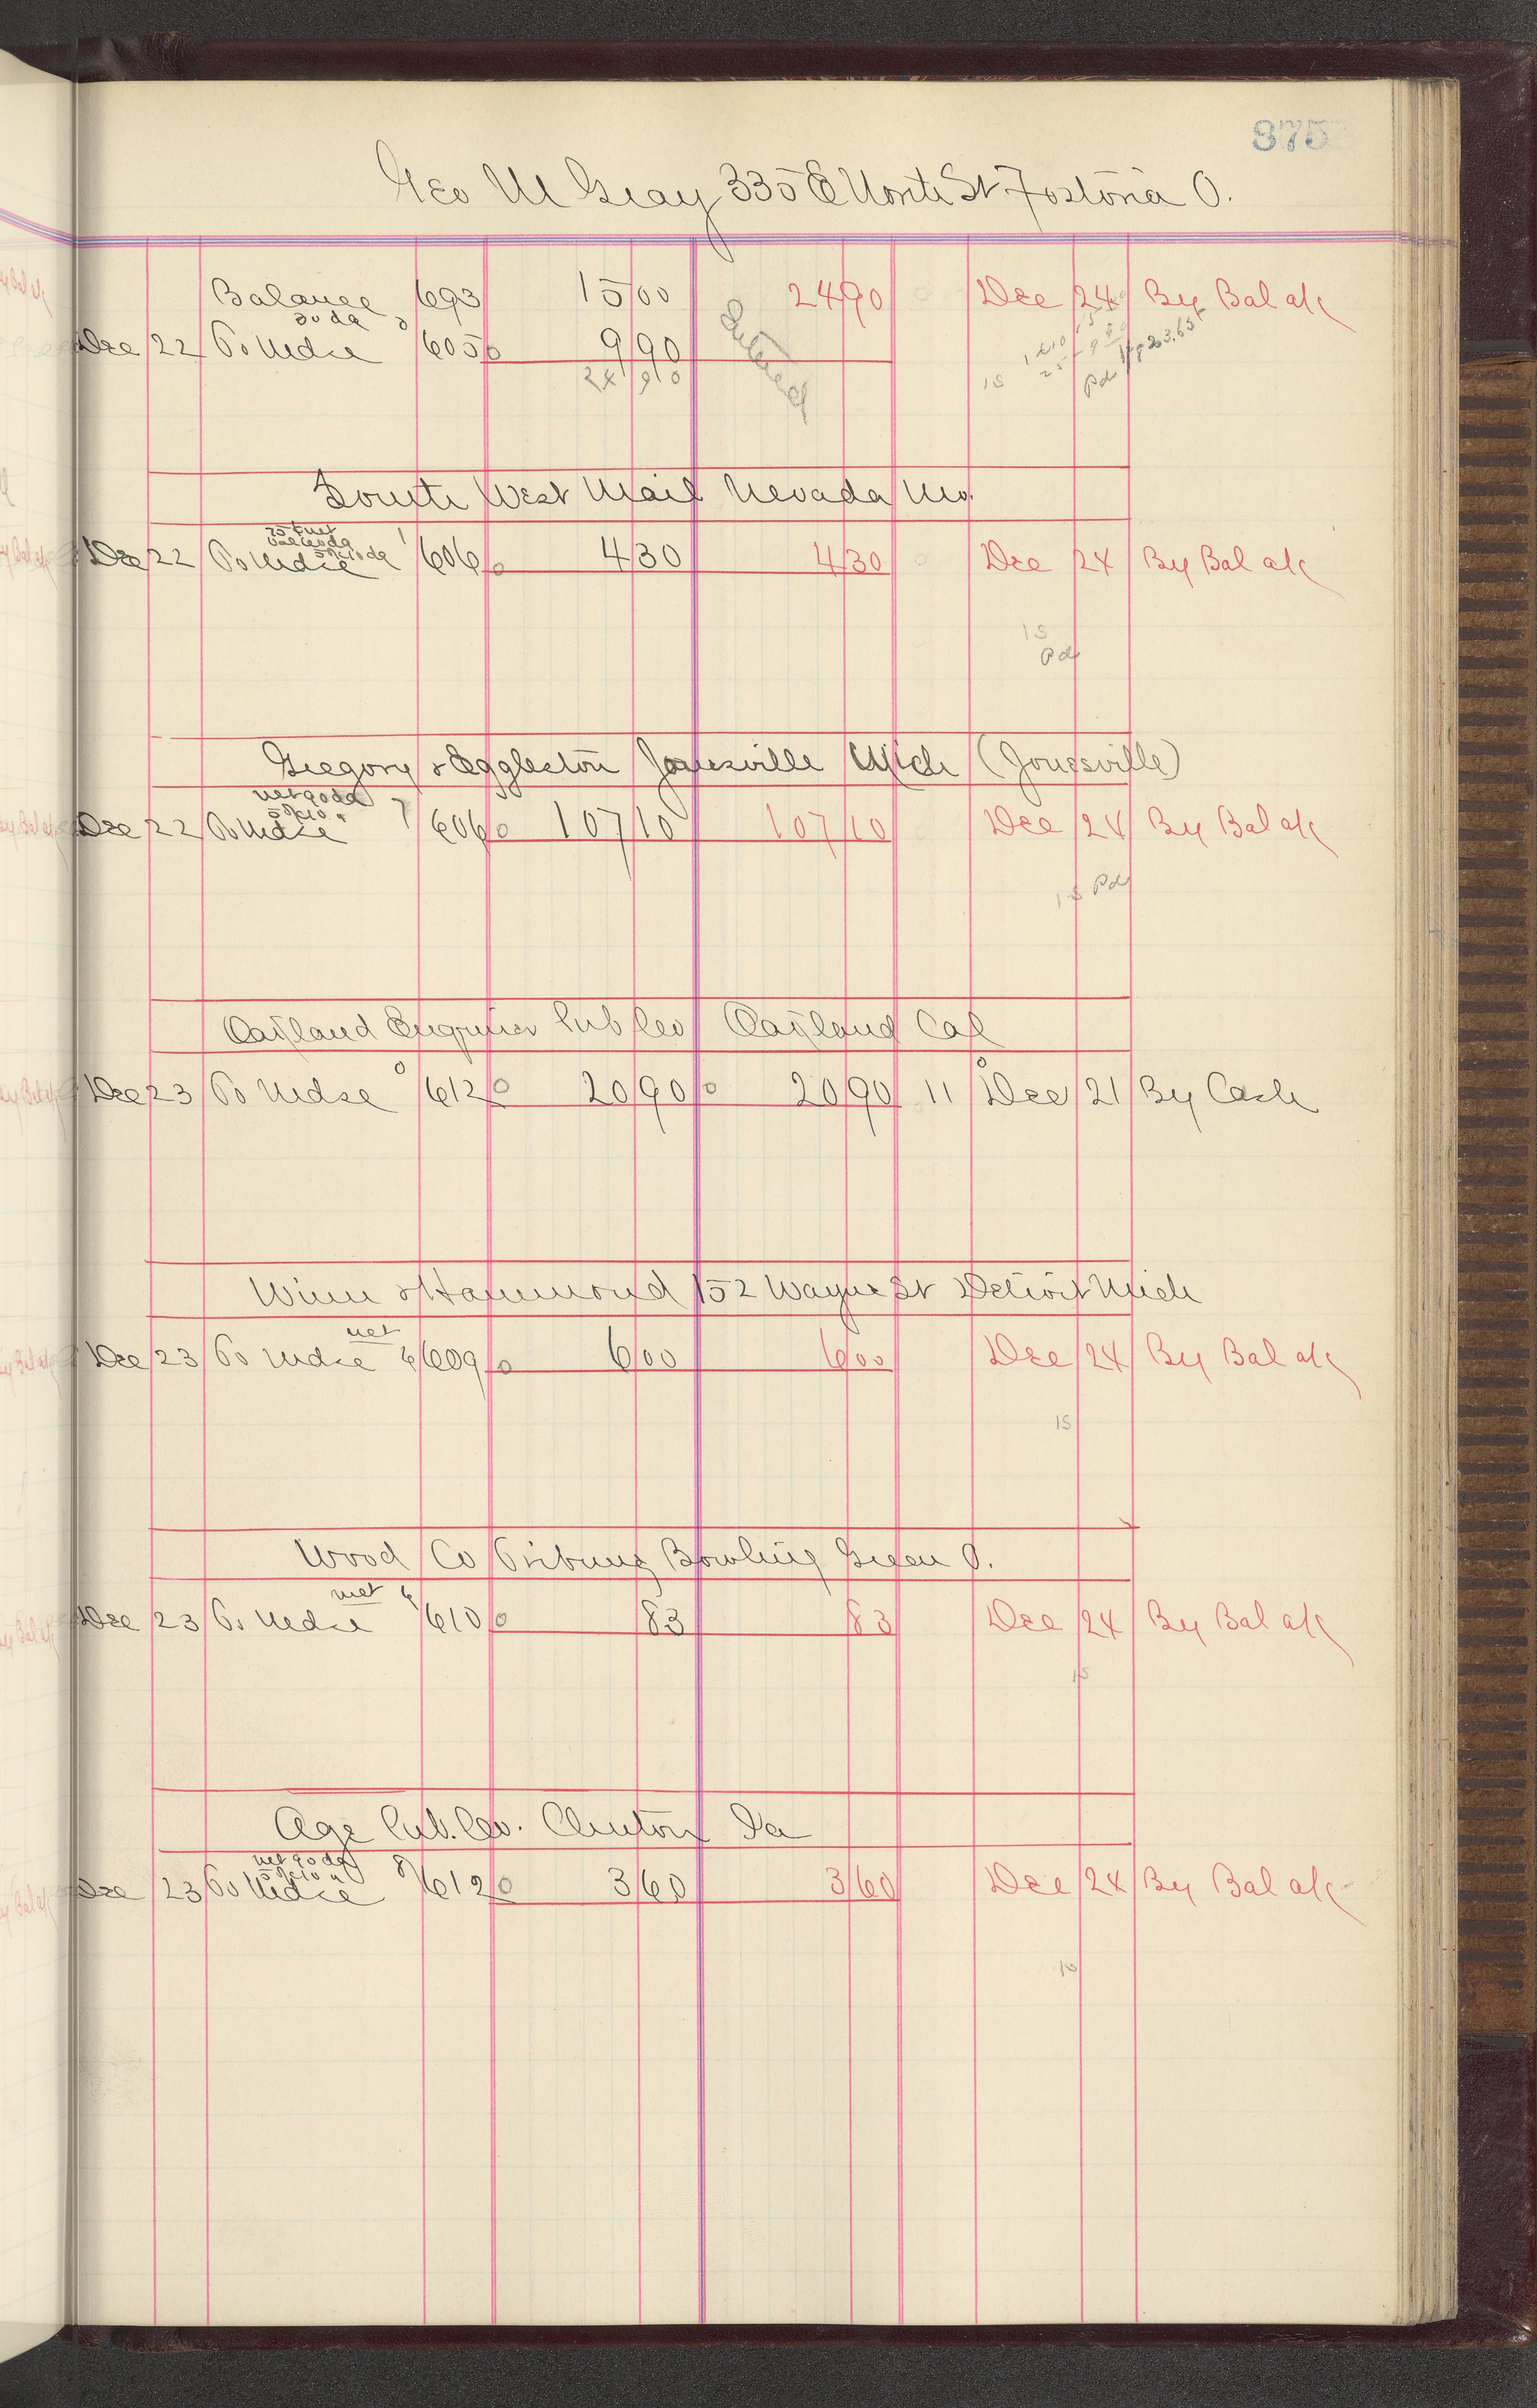 375
Geo M Gray 335 E North St Fostoria O.
Balance 693 15 00 24 90 Dec 24 By Bal a/c
30 da
Dec 22 To Mdse 605 9 90
24 90 Entered 15 Pd
South West Mail Nevada Mo.
Dec 22 To Mdse 606 4 30 4 30 Dec 24 By Bal a/c
15
Pd
Gregory & Eggleston Jonesville Mich (Jonesville)
net 90 da
5% 10 "
Dec 22 To Mdse 7 606 107 10 107 10 Dec 24 By Bal a/c
15 Pd
Oakland Enquirer Pub Co Oakland Cal
Dec 23 To Mdse 612 20 90 20 90 11 Dec 21 By Cash
Winn & Hammond 152 Wayne St Detroit Mich
net
Dec 23 To Mdse 6 609 6 00 6 00 Dec 24 By Bal a/c
15
Wood Co Tribune Bowling Green O.
net 6
Dec 23 To Mdse 610 83 83 Dec 24 By Bal a/c
15
Age Pub. Co. Clinton Ia
net 90 da
5% 10 "
Dec 23 To Mdse 8 612 3 60 3 60 Dec 24 By Bal a/c
10